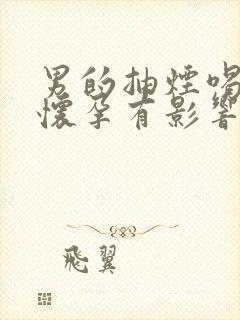 男的抽煙喝
懷孕有影響
飛翼